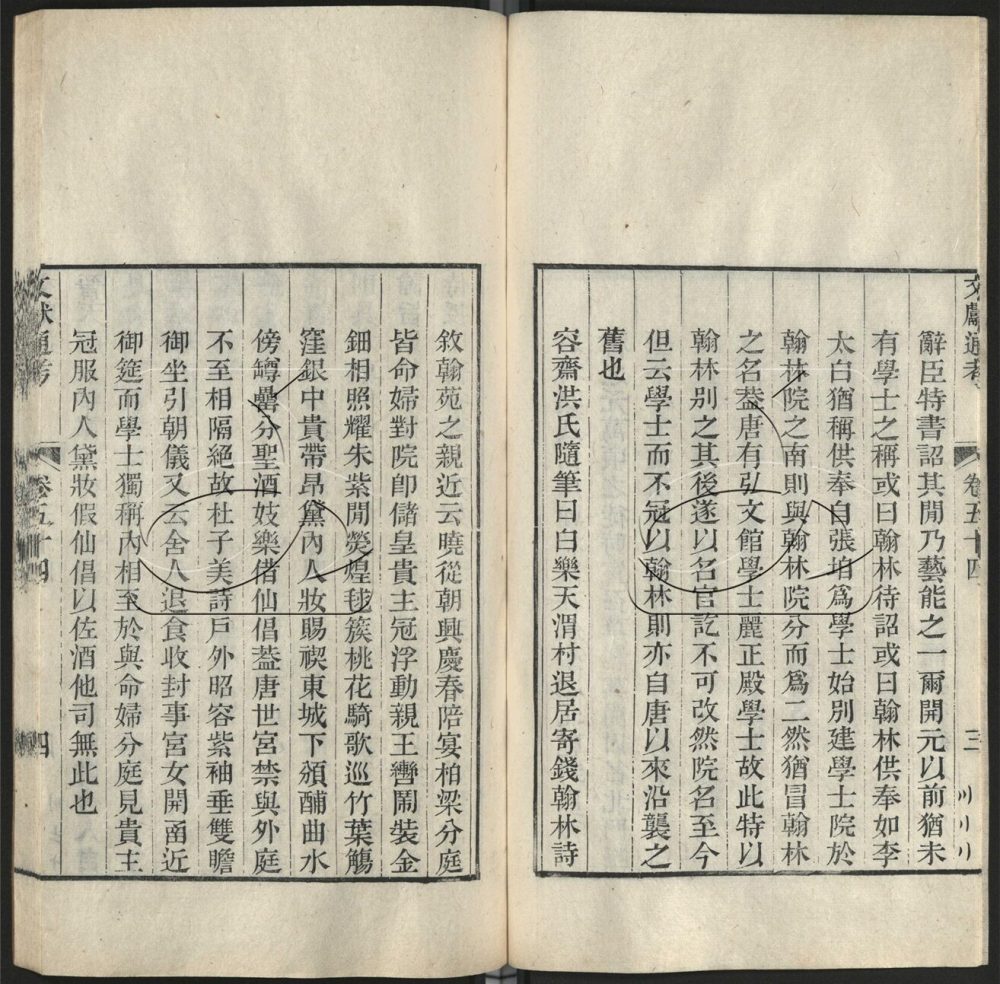 文獻通考 卷五十四 三
辭臣特書詔其閒乃藝能之一爾開元以前猶未
有學士之稱或曰翰林待詔或曰翰林供奉如李
太白猶稱供奉自張垍為學士始別建學士院於
翰林院之南則與翰林院分而爲二然猶冒翰林
之名葢唐有弘文館學士麗正殿學士故此特以
翰林別之其後遂以名官訖不可改然院名至今
但云學士而不冠以翰林則亦自唐以來沿襲之
舊也
容齋洪氏隨筆曰白樂天渭村退居寄錢翰林詩
敘翰苑之親近云曉從朝興慶春陪宴柏梁分庭
皆命婦對院卽儲皇貴主冠浮動親王轡鬧裝金
鈿相照耀朱紫閒熒煌毬簇桃花騎歌巡竹葉觴
窪銀中貴帶昂黛內人妝賜禊東城下頒酺曲水
傍罇罍分聖酒妓樂借仙倡葢唐世宮禁與外庭
不至相隔絕故杜子美詩戶外昭容紫袖垂雙瞻
御坐引朝儀又云舍人退食收封事宮女開函近
御筵而學士獨稱內相至於與命婦分庭見貴主
冠服內人黛妝假仙倡以佐酒他司無此也
文獻通考 卷五十四 四